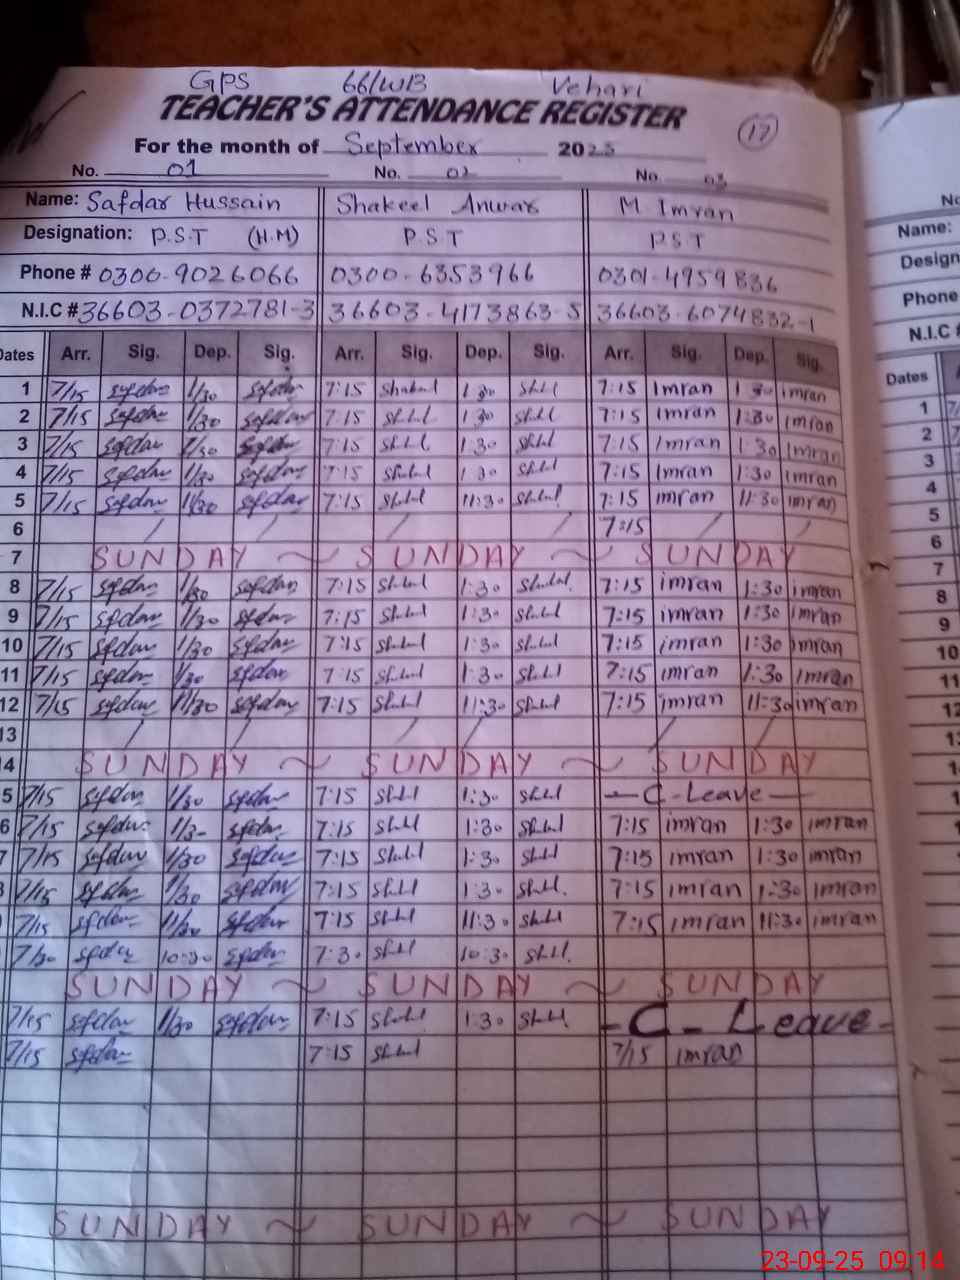 GPS 66/WB Vehari
TEACHER'S ATTENDANCE REGISTER
17
For the month of September 2025
No. 01 No. 02 No. 03
Name: Safdar Hussain Shakeel Anwar M Imran
Designation: P.S.T (H.M) P.S.T P.S.T
Phone # 0300-9026066 0300-6353966 0301-4959836
N.I.C # 36603-0372781-3 36603-4173863-5 36603-6074832-1
Dates Arr. Sig. Dep. Sig. Arr. Sig. Dep. Sig. Arr. Sig. Dep. Sig.
1 7/15 safdar 1/30 safdar 7:15 Shakeel 1:30 Shkl 7:15 Imran 1:30 imran
2 7/15 safdar 1/30 safdar 7:15 Shkl 1:30 Shkl 7:15 Imran 1:30 imran
3 7/15 safdar 1/30 safdar 7:15 Shkl 1:30 Shkl 7:15 Imran 1:30 imran
4 7/15 safdar 1/30 safdar 7:15 Shkl 1:30 Shkl 7:15 Imran 1:30 imran
5 7/15 safdar 11/30 safdar 7:15 Shkl 11:30 Shkl 7:15 imran 11:30 imran
6 / / / / 7:15 / /
7 SUNDAY ~ SUNDAY ~ SUNDAY
8 7/15 safdar 1/30 safdar 7:15 Shkl 1:30 Shkl 7:15 imran 1:30 imran
9 7/15 safdar 1/30 safdar 7:15 Shkl 1:30 Shkl 7:15 imran 1:30 imran
10 7/15 safdar 1/30 safdar 7:15 Shkl 1:30 Shkl 7:15 imran 1:30 imran
11 7/15 safdar 1/30 safdar 7:15 Shkl 1:30 Shkl 7:15 imran 1:30 imran
12 7/15 safdar 11/30 safdar 7:15 Shkl 11:30 Shkl 7:15 imran 11:30 imran
13 / / / / / /
4 SUNDAY ~ SUNDAY ~ SUNDAY
5 7/15 safdar 1/30 safdar 7:15 Shkl 1:30 Shkl - C-Leave -
6 7/15 safdar 1/30 safdar 7:15 Shkl 1:30 Shkl 7:15 imran 1:30 imran
7 7/15 safdar 1/30 safdar 7:15 Shkl 1:30 Shkl 7:15 imran 1:30 imran
7/15 safdar 1/30 safdar 7:15 Shkl 1:30 Shkl. 7:15 imran 1:30 imran
7/15 safdar 11/30 safdar 7:15 Shkl 11:30 Shkl 7:15 imran 11:30 imran
7/30 safdar 10:30 safdar 7:30 Shkl 10:30 Shkl.
SUNDAY ~ SUNDAY ~ SUNDAY
7/15 safdar 1/30 safdar 7:15 Shkl 1:30 Shkl. - C - Leave -
7/15 safdar 7:15 Shkl 7/15 imran
SUNDAY ~ SUNDAY ~ SUNDAY
Name:
Design
Phone
N.I.C
Dates
1
2
3
4
5
6
7
8
9
10
11
12
23-09-25 09:14